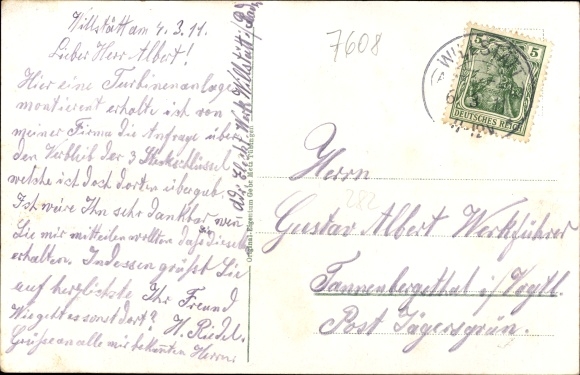 Willstätt am 4.3.11.
Lieber Herr Albert!
Hier eine Turbinenanlage
montierent erhalte ich von
meiner Firma die Anfrage über
den Verbleib der 3 Steckschlüssel
welche ich dort dorten übergeb.
Ist wäre Ihn sehr dankbar wen
Sie mir mitteilen wollten daß Sie dieselb
erhalten. Indessen grüßt Sie
auf herzlichste Ihr Freund
Wie geht es sonst dort? H. Riedel.
Grüße an alle mir bekannten Herrn.
adr. Elektr. Werk Willstätt, Bad.
Original-Eigentum Gebr. Metz Tübingen
7608
WILLSTÄTT
5 5
DEUTSCHES REICH
Herrn
282
Gustav Albert Werkführer
Tannenbergsthal i/Vogtl.
Post Jägersgrün.